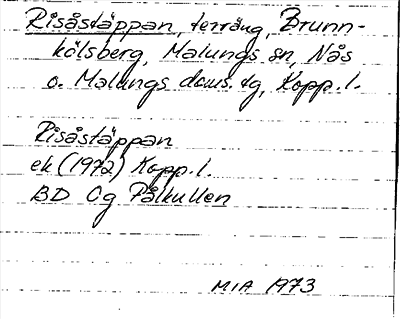 Risåstäppan, terräng, Brunn-
kölsberg, Malungs sn, Nås
o. Malungs doms. tg, Kopp. l.
Risåstäppan
ek (1972) Kopp. l.
BD Og Pålkullen
MIA 1973